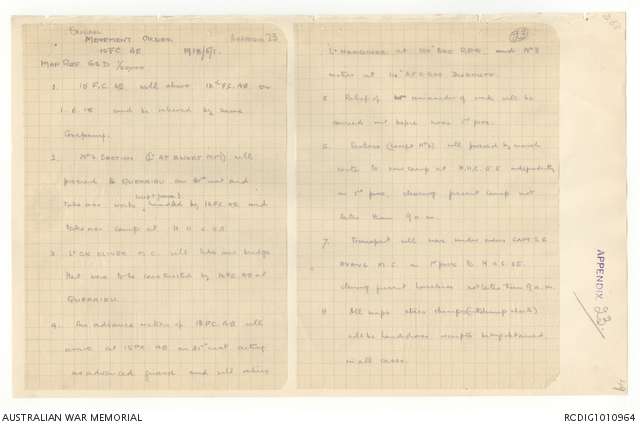 MOVEMENT ORDER
APPENDIX 23
15 FC AE 1918/5/1.
MAP REF 62D 1/40000
1. 15 F.C. AE will
12th F.C. AE on
1.6.18 and be relieved by same
Company.
2. No 4 SECTION (Lt AT ) will
proceed to QUERRIEU on 31st inst and
take over works handled by 12 FC AE and
take over camp at H.11.c.5.8.
3. Lt CK OLIVER M.C. will take over bridge
that was to be constructed by 12 FC AE at
QUERRIEU.
4. An advance section of 12 F.C. AE will
arrive at 15 FC AE on 31st inst acting
as advanced guard and will relieve
23
Lt at Bde RHQ and No 3
section at
5. Relief of remainder of work will be
carried out before noon 1st prox.
6. Sections (except No 4) will proceed by march
route to new camp at H.11.c.5.8 independently
on 1st prox, clearing present camp not
later than 9 a.m.
7. Transport will move under orders CAPT S.E.
EVANS M.C. on 1st prox to H.11.c.5.8.
clearing present horselines not later than 9 a.m.
8. All maps stores
will be handed over receipts being obtained
in all cases.
APPENDIX 23
AUSTRALIAN WAR MEMORIAL
RCDIG1010964